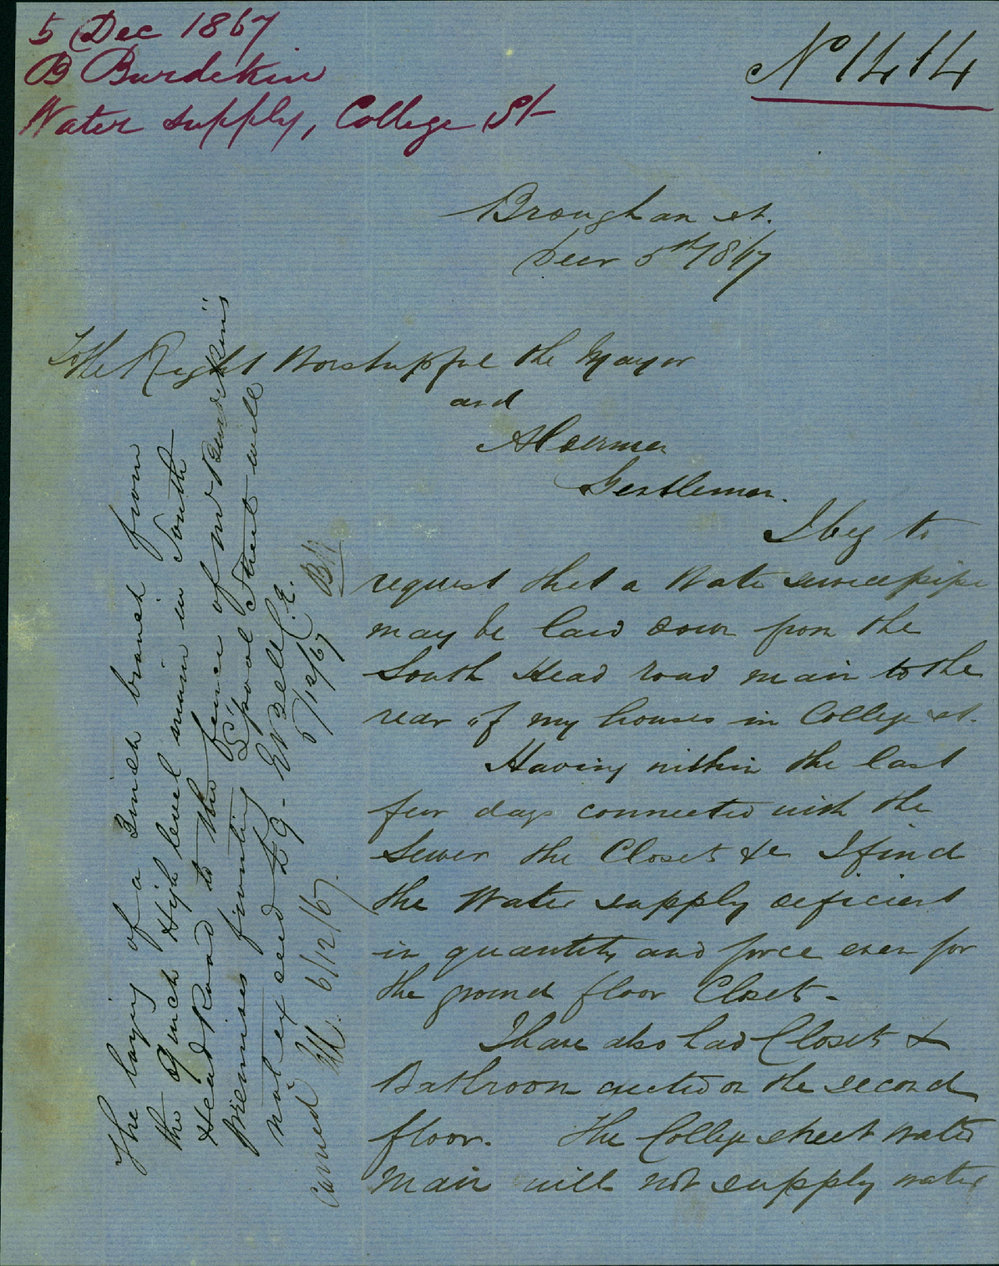 5 Dec 1867
B Burdekin
Water supply, College St
No 1414
Brougham st.
Decr 5th 1867
To the Right Worshipful the Mayor
and
Aldermen
Gentlemen.
I beg to
request that a Water servicepipe
may be laid down from the
South Head road main to the
rear of my houses in College st.
Having within the last
few days connected with the
Sewer the Closets &c I find
the Water supply deficient
in quantity and force even for
the ground floor Closet.
I have also had Closets &
Bathroom erected on the second
floor. The College street water
main will not supply water
The laying of a 3 inch branch from
the 9 inch High level main in South
Head Road to the fence of Mr Burdekin's
Premises fronting L'pool Street will
not exceed £9. - E Bell C.E.
5/12/67
Carried 6/12/67.